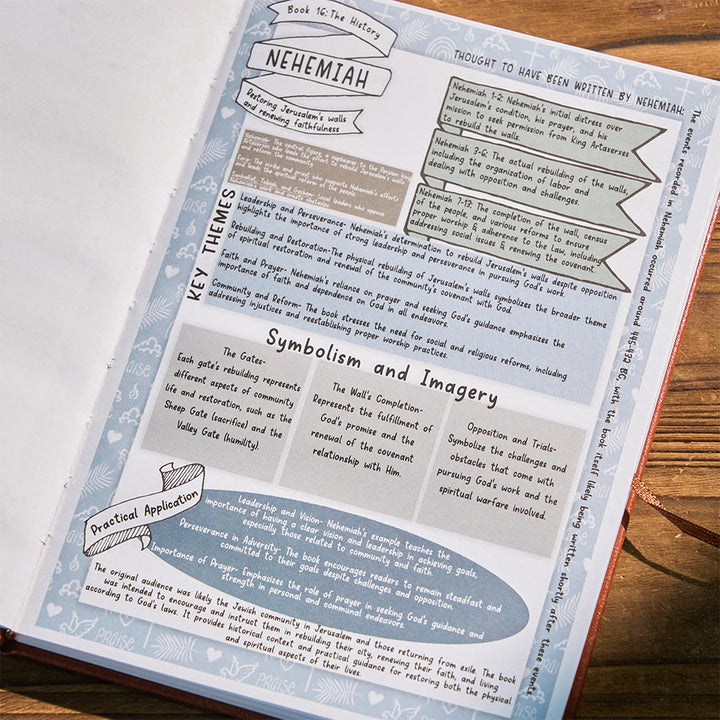 Book 16: The History
NEHEMIAH
Restoring Jerusalem's walls
and renewing faithfulness
THOUGHT TO HAVE BEEN WRITTEN BY NEHEMIAH:
The events recorded in Nehemiah occurred around 445-432 BC, with the book itself likely being written shortly after these events
Nehemiah 1-2: Nehemiah's initial distress over
Jerusalem's condition, his prayer, and his
mission to seek permission from King Artaxerxes
to rebuild the walls.
Nehemiah 3-6: The actual rebuilding of the walls,
including the organization of labor and
dealing with opposition and challenges.
Nehemiah 7-13: The completion of the wall, census
of the people, and various reforms to ensure
proper worship & adherence to the law, including
addressing social issues & renewing the covenant.
Nehemiah: The central figure, a cupbearer to the Persian king
Artaxerxes who leads the effort to rebuild Jerusalem's walls
and reform the community.
Ezra: The scribe and priest who supports Nehemiah's efforts
and leads the spiritual reform of the people.
Sanballat, Tobiah, and Geshem: Local leaders who oppose
Nehemiah's work and create obstacles
KEY THEMES
Leadership and Perseverance- Nehemiah's determination to rebuild Jerusalem's walls despite opposition
highlights the importance of strong leadership and perseverance in pursuing God's work.
Rebuilding and Restoration-The physical rebuilding of Jerusalem's walls symbolizes the broader theme
of spiritual restoration and renewal of the community's covenant with God.
Faith and Prayer- Nehemiah's reliance on prayer and seeking God's guidance emphasizes the
importance of faith and dependence on God in all endeavors.
Community and Reform- The book stresses the need for social and religious reforms, including
addressing injustices and reestablishing proper worship practices.
Symbolism and Imagery
The Gates-
Each gate's rebuilding represents
different aspects of community
life and restoration, such as the
Sheep Gate (sacrifice) and the
Valley Gate (humility).
The Wall's Completion-
Represents the fulfillment of
God's promise and the
renewal of the covenant
relationship with Him.
Opposition and Trials-
Symbolize the challenges and
obstacles that come with
pursuing God's work and the
spiritual warfare involved.
Practical Application
Leadership and Vision- Nehemiah's example teaches the
importance of having a clear vision and leadership in achieving goals,
especially those related to community and faith.
Perseverance in Adversity- The book encourages readers to remain steadfast and
committed to their goals despite challenges and opposition.
Importance of Prayer- Emphasizes the role of prayer in seeking God's guidance and
strength in personal and communal endeavors.
The original audience was likely the Jewish community in Jerusalem and those returning from exile. The book
was intended to encourage and instruct them in rebuilding their city, renewing their faith, and living
according to God's laws. It provides historical context and practical guidance for restoring both the physical
and spiritual aspects of their lives.
PRAISE
praise